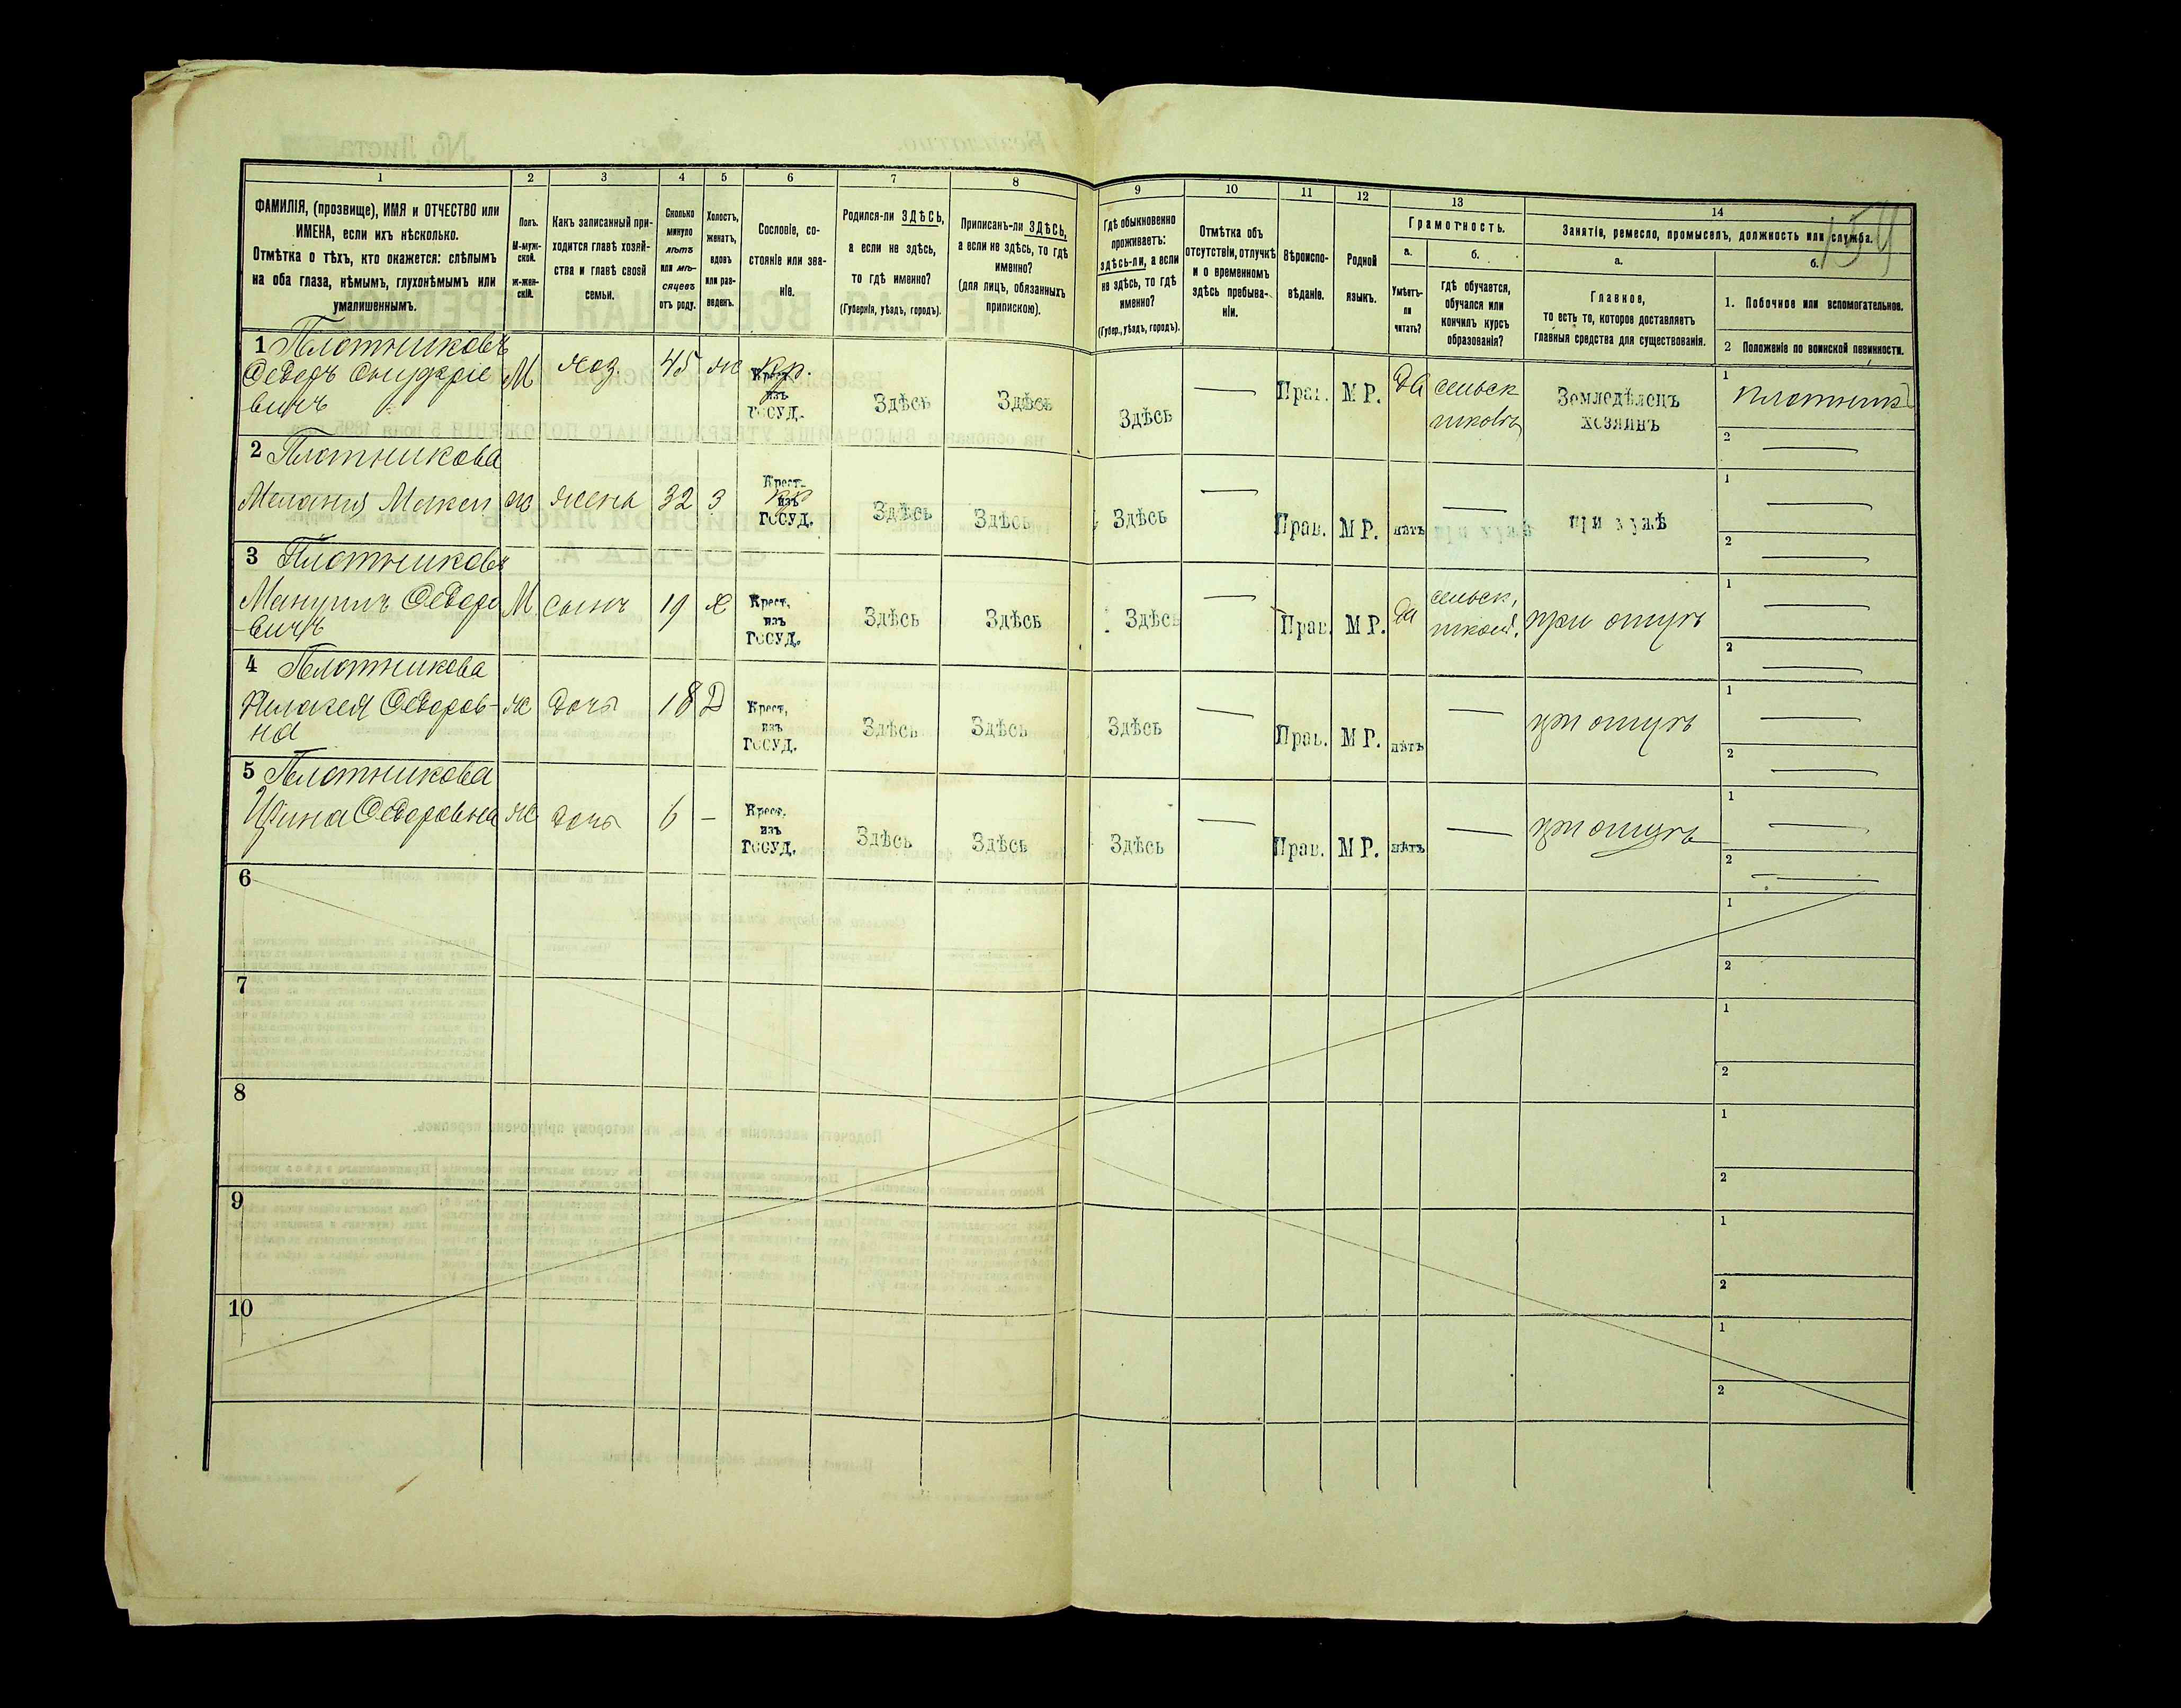 154
1 2 3 4 5 6 7 8 9 10 11 12 13 14
ФАМИЛІЯ, (прозвище), ИМЯ и ОТЧЕСТВО или
ИМЕНА, если ихъ нѣсколько.
Отмѣтка о тѣхъ, кто окажется: слѣпымъ
на оба глаза, нѣмымъ, глухонѣмымъ или
умалишеннымъ.
Полъ.
М-муж-
ской.
ж-жен-
скій.
Какъ записанный при-
ходится главѣ хозяй-
ства и главѣ своей
семьи.
Сколько
минуло
лѣтъ
или мѣ-
сяцевъ
отъ роду.
Холостъ,
женатъ,
вдовъ
или раз-
веденъ.
Сословіе, со-
стояніе или зва-
ніе.
Родился-ли ЗДѢСЬ,
а если не здѣсь,
то гдѣ именно?
(Губернія, уѣздъ, городъ).
Приписанъ-ли ЗДѢСЬ,
а если не здѣсь, то гдѣ
именно?
(для лицъ, обязанныхъ
припискою).
Гдѣ обыкновенно
проживаетъ:
здѣсь-ли, а если
не здѣсь, то гдѣ
именно?
(Губер., уѣздъ, городъ).
Отмѣтка объ
отсутствіи, отлучкѣ
и о временномъ
здѣсь пребыва-
ніи.
Вѣроиспо-
вѣданіе.
Родной
языкъ.
Грамотность.
а.
Умѣетъ-
ли
читать?
б.
гдѣ обучается,
обучался или
кончилъ курсъ
образованія?
Занятіе, ремесло, промыселъ, должность или служба.
а.
Главное,
то есть то, которое доставляетъ
главныя средства для существованія.
б.
1. Побочное или вспомогательное.
2 Положеніе по воинской повинности.
1 Плотниковъ
М хоз. 45 ж кр. Крест. изъ ГОСУД. Здѣсь Здѣсь Здѣсь — Прав. М Р. да сельск Земледѣлецъ хозяинъ 1 плотник
вичъ
2 —
2 Плотникова
Мелания ж жена 32 З Крест. изъ ГОСУД. Здѣсь Здѣсь Здѣсь — Прав. М Р. нѣтъ — при мужѣ 1 —
2 —
3 Плотниковъ
М сынъ 19 х Крест. изъ ГОСУД. Здѣсь Здѣсь Здѣсь — Прав. М Р. да сельск. школ. при отцѣ 1 —
-вичъ
2 —
4 Плотникова
ж дочь 18 Д Крест. изъ ГОСУД. Здѣсь Здѣсь Здѣсь — Прав. М Р. нѣтъ — при отцѣ 1 —
на
2 —
5 Плотникова
ж дочь 6 – Крест. изъ ГОСУД. Здѣсь Здѣсь Здѣсь — Прав. М Р. нѣтъ — при отцѣ 1 —
2 —
6 1
2
7 1
2
8 1
2
9 1
2
10 1
2